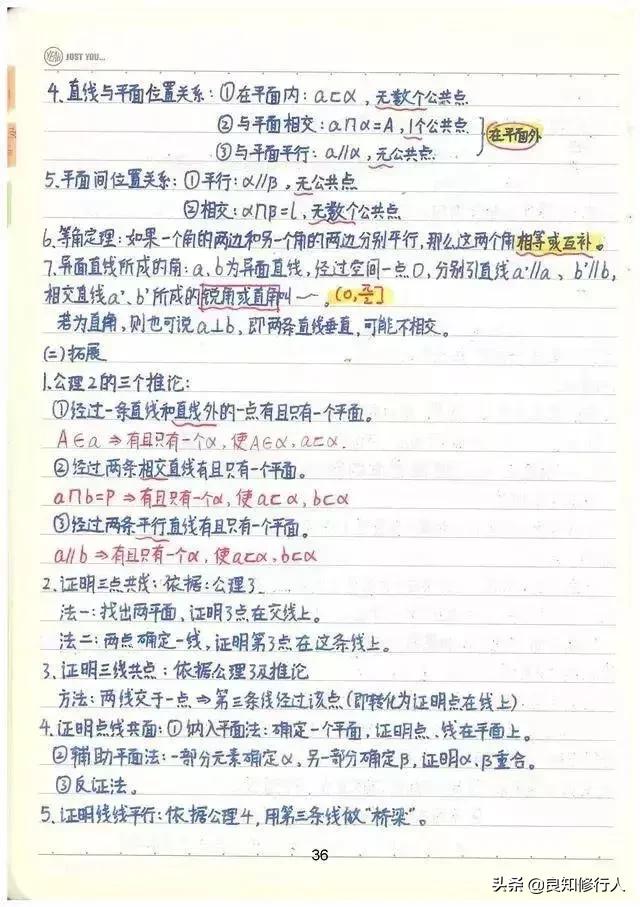 YEAH JUST YOU...
4、直线与平面位置关系:①在平面内:a⊂α,无数个公共点
②与平面相交:a∩α=A,1个公共点
在平面外
③与平面平行:a∥α,无公共点
5、平面间位置关系:①平行:α∥β,无公共点
②相交:α∩β=l,无数个公共点
6、等角定理:如果一个角的两边和另一个角的两边分别平行,那么这两个角相等或互补。
7、异面直线所成的角:a、b为异面直线,经过空间一点O,分别引直线a'∥a、b'∥b,
相交直线a'、b'所成的锐角或直角叫~。(0,π/2]
若为直角,则也可说a⊥b,即两条直线垂直,可能不相交。
(二)拓展
1.公理2的三个推论:
①经过一条直线和直线外的一点有且只有一个平面。
A∈a⇒有且只有一个α,使A∈α,a⊂α.
②经过两条相交直线有且只有一个平面。
a∩b=P⇒有且只有一个α,使a⊂α,b⊂α
③经过两条平行直线有且只有一个平面。
a∥b⇒有且只有一个α,使a⊂α,b⊂α
2、证明三点共线:依据:公理3
法一:找出两平面,证明3点在交线上。
法二:两点确定一线,证明第3点在这条线上。
3、证明三线共点:依据公理3及推论
方法:两线交于一点⇒第三条线经过该点(即转化为证明点在线上)
4、证明点线共面:①纳入平面法:确定一个平面,证明点、线在平面上。
②辅助平面法:一部分元素确定α,另一部分确定β,证明α、β重合。
③反证法。
5、证明线线平行:依据公理4,用第三条线做“桥梁”。
36
头条@良知修行人